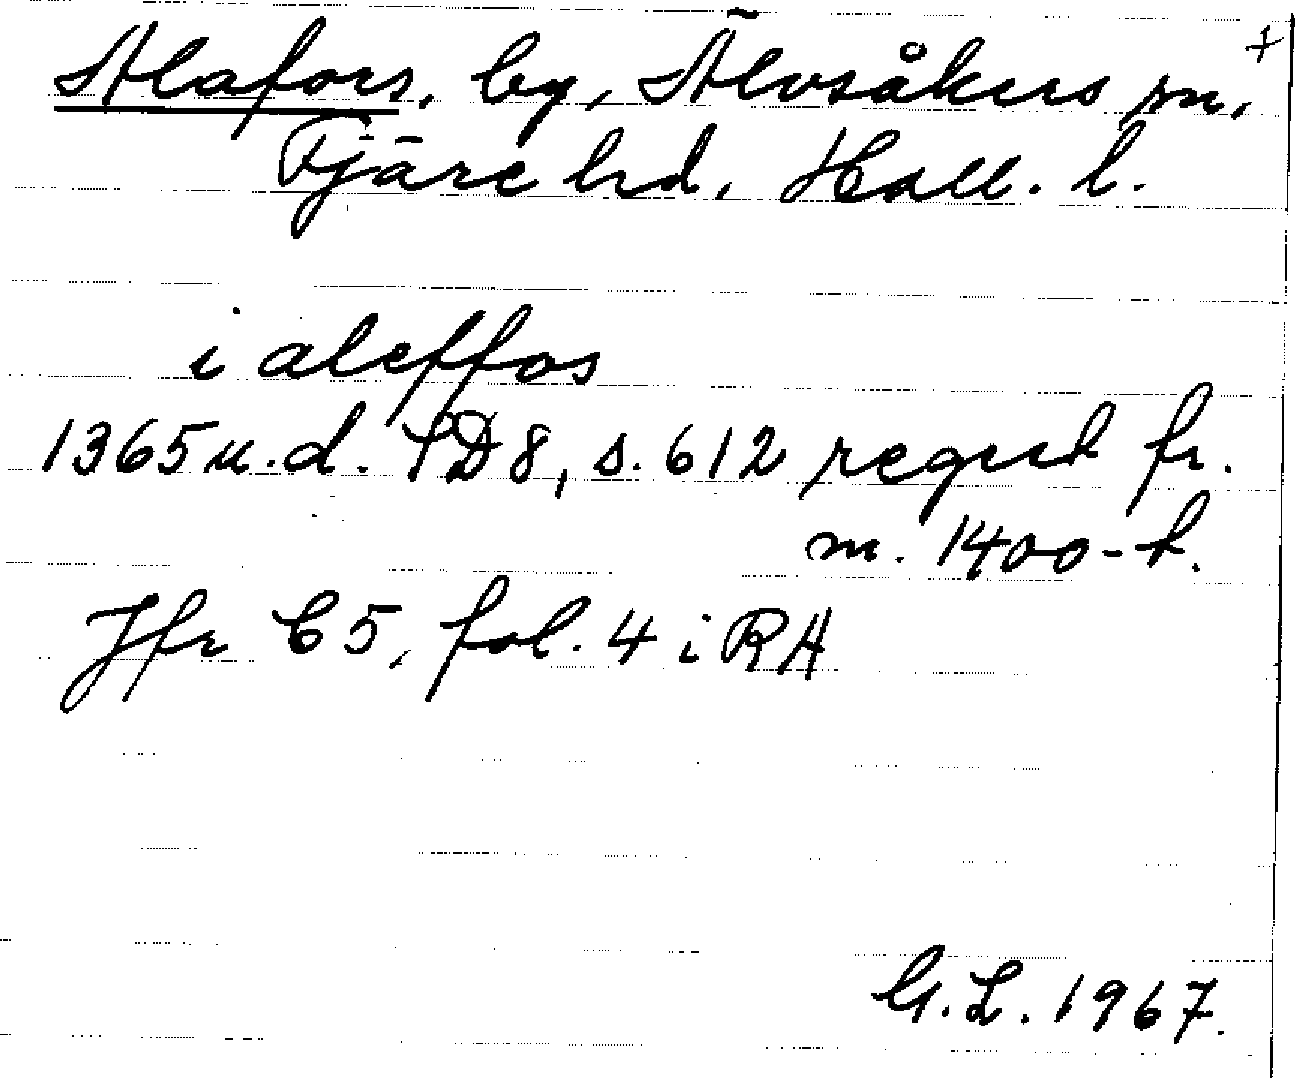 Alafors, by, Älvsåkers sn, +
Fjäre hd, Hall. l.
i aleffos
1365 u.d. SD 8, s. 612 regest fr.
m. 1400-t.
Jfr C5, fol. 4 i RA
G.L. 1967.